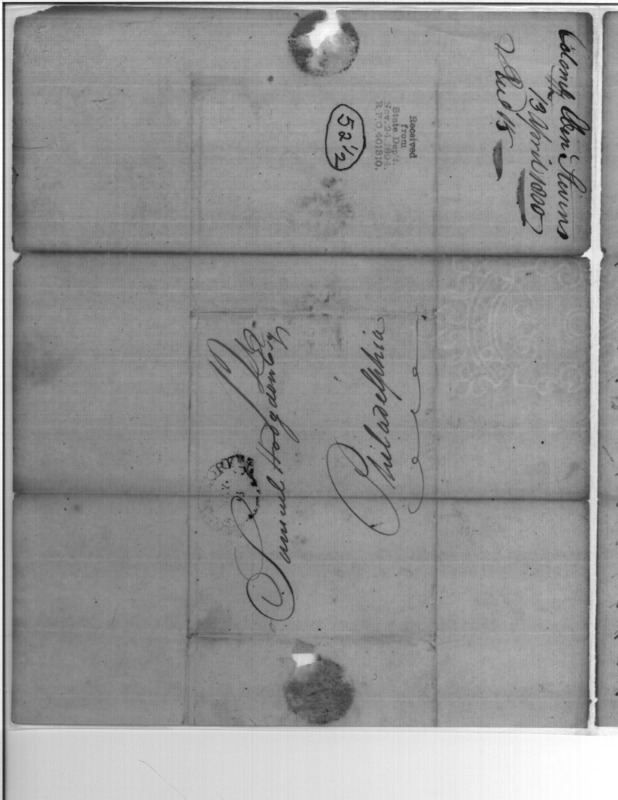 Colonel Eben Stevens
13 April 1800
Recd 15
Received
from
State Dept.
Nov. 24, 1894.
R.P.O. 401810.
52 1/2
Samuel Hodgdon Esqr
Philadelphia